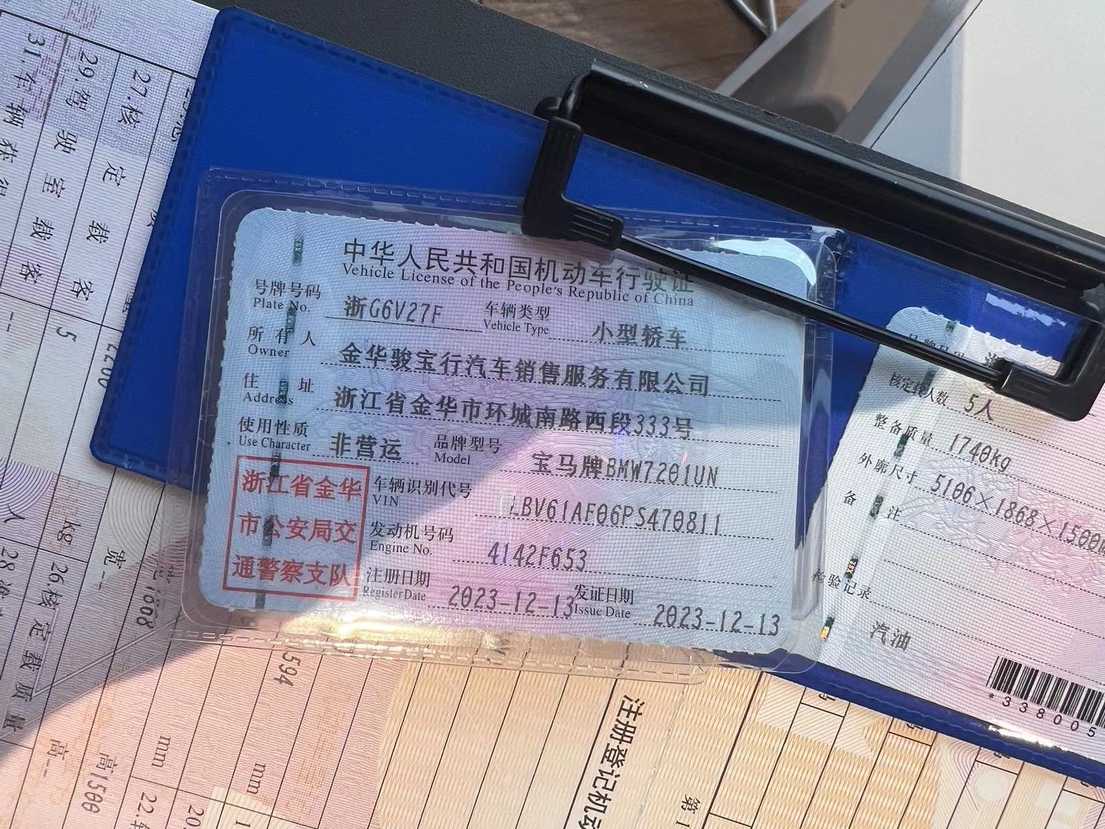 中华人民共和国机动车行驶证
Vehicle License of the People's Republic of China
号牌号码 浙G6V27F 车辆类型 小型轿车
Plate No. Vehicle Type
所有人 金华骏宝行汽车销售服务有限公司
Owner
住址 浙江省金华市环城南路西段333号
Address
使用性质 非营运 品牌型号 宝马牌BMW7201UN
Use Character Model
浙江省金华
市公安局交
通警察支队
车辆识别代号 LBV61AF06PS470811
VIN
发动机号码 4142F653
Engine No.
注册日期 2023-12-13 发证日期 2023-12-13
Register Date Issue Date
核定载人数 5人
整备质量 1740kg
外廓尺寸 5106×1868×1500
备注
检验记录
汽油
*338005
27.核定载客
5
29.驾驶室载客
--
31.车辆获得
26.核定载质量
kg
宽--
高--
mm
高1500
mm
594
注册登记机动
第1